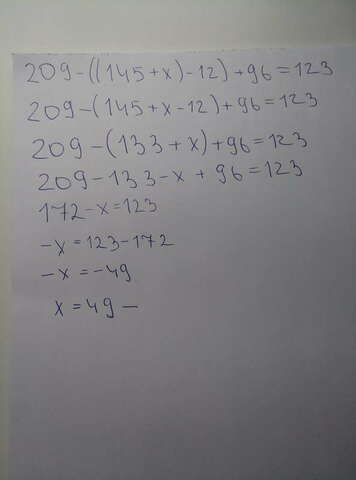 209-((145+x)-12)+96=123
209-(145+x-12)+96=123
209-(133+x)+96=123
209-133-x+96=123
172-x=123
-x=123-172
-x=-49
x=49-